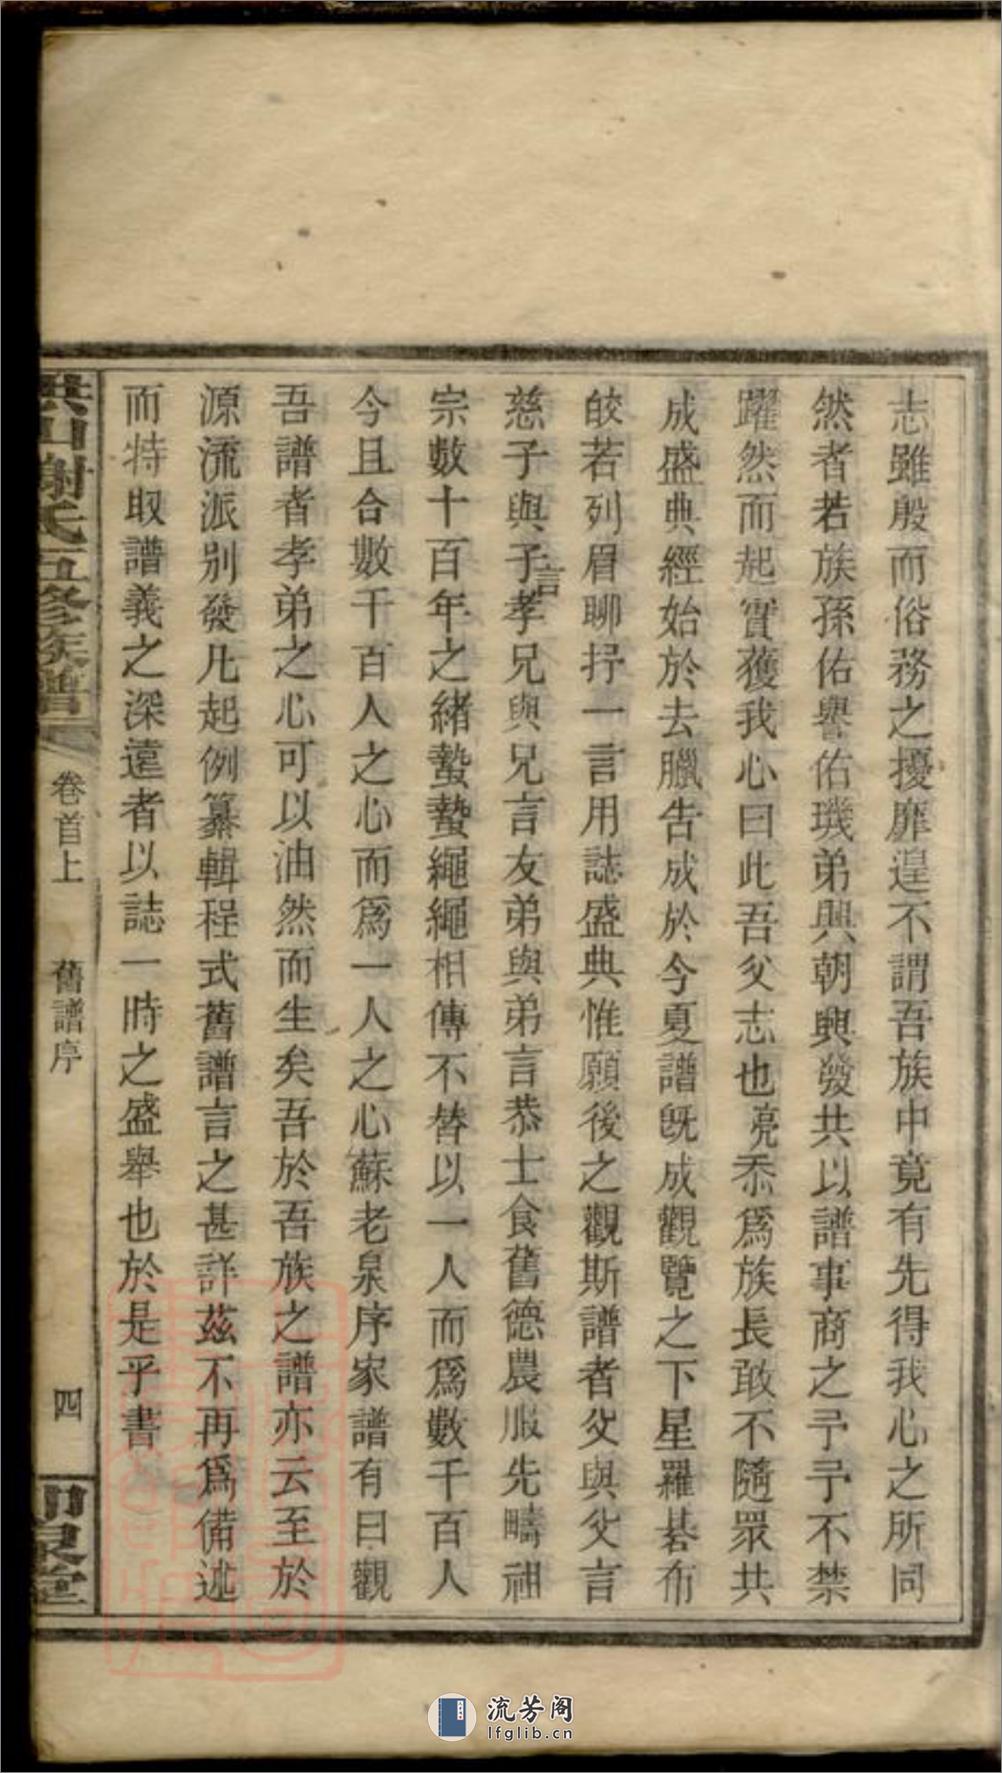 志雖殷而俗務之擾靡遑不謂吾族中竟有先得我心之所同
然者若族孫佑譽佑璣弟興朝興發共以譜事商之予予不禁
躍然而起實獲我心曰此吾父志也亮忝爲族長敢不隨眾共
成盛典經始於去臘告成於今夏譜旣成觀覽之下星羅碁布
皎若列眉聊抒一言用誌盛典惟願後之觀斯譜者父與父言
慈子與子言孝兄與兄言友弟與弟言恭士食舊德農服先疇祖
宗數十百年之緒蟄蟄繩繩相傳不替以一人而爲數千百人
今且合數千百人之心而爲一人之心蘇老泉序家譜有曰觀
吾譜者孝弟之心可以油然而生矣吾於吾族之譜亦云至於
源流派别發凡起例纂輯程式舊譜言之甚詳茲不再爲備述
而特取譜義之深遠者以誌一時之盛舉也於是乎書
洪山謝氏五修族譜
卷首上
舊譜序
四
流芳阁
lfglib.cn